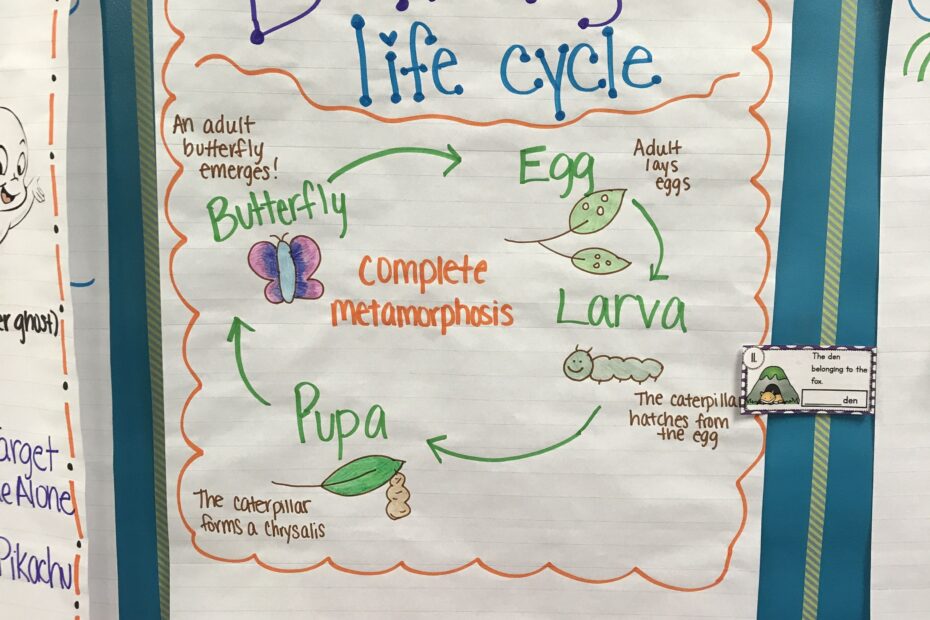 life cycle
An adult
butterfly
emerges!
Butterfly
Egg
Adult
lays
eggs
complete
metamorphosis
Larva
The caterpillar
hatches from
the egg
Pupa
The caterpillar
forms a chrysalis
11.
The den
belonging to the
fox.
den
ghost)
Alone
Pikachu